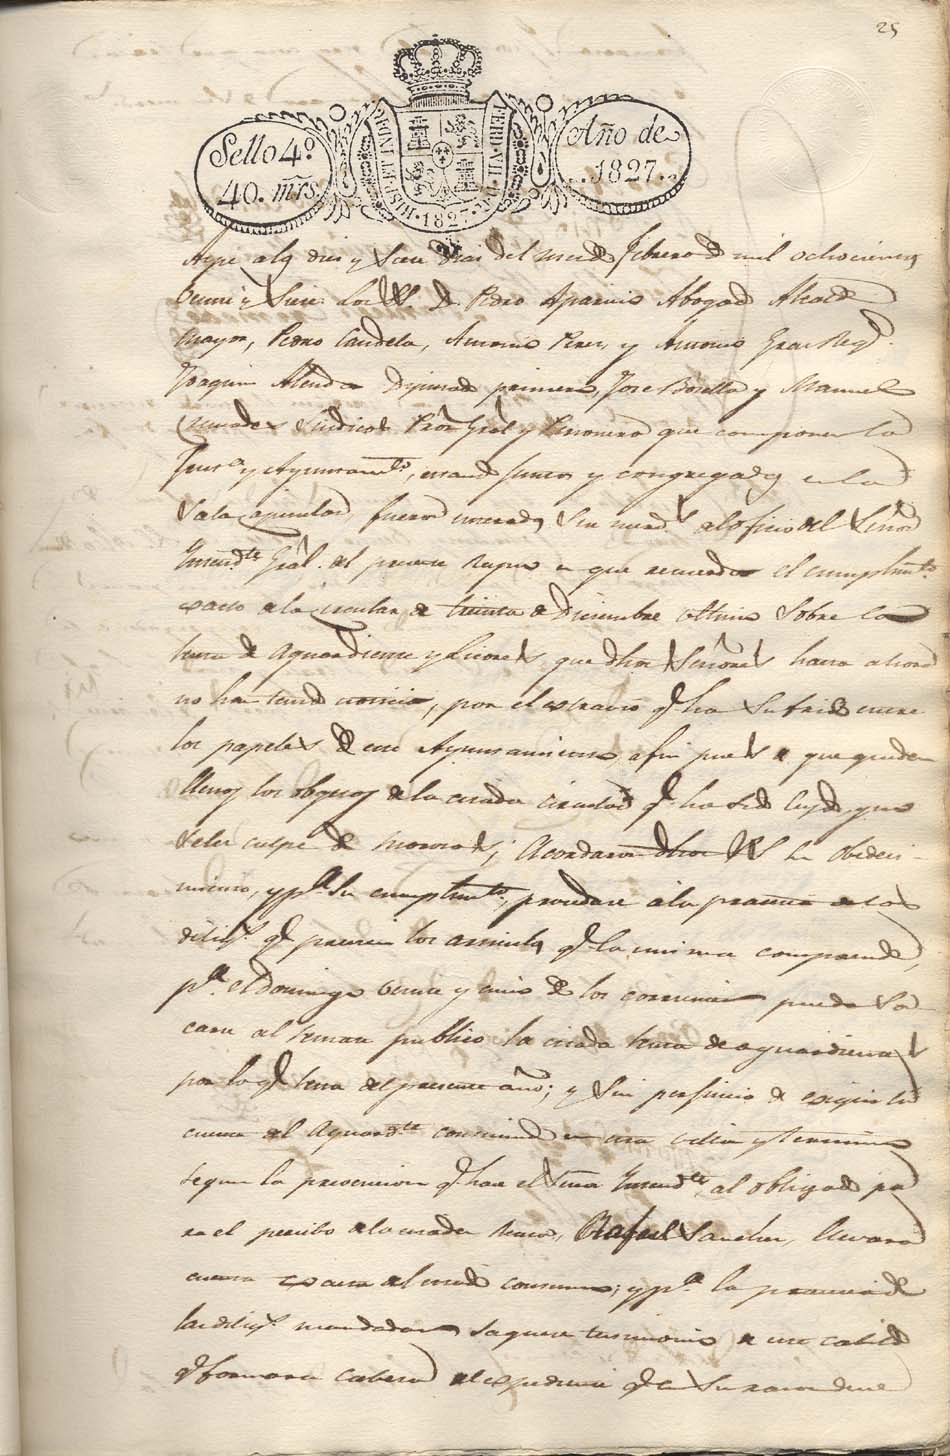 25
Sello 4º
40. mrs
HISP. ET IND. R.
FERD. VII. D. G.
1827
Año de
1827
diez y siete dias del mes de Febrero de mil ochocientos
veinte y siete: Los SS. D. Pedro Aparicio Abogado Alcalde
mayor, Pedro Candela, Antonio Perez, y Antonio
Joaquin Diputado primero, Jose Botella y Manuel
Sindicos Pror Gral y Personero que componen la
y Ayuntamto, estando juntos y congregados en la
Sala capitular fueron al oficio del Señor
Intendte Gral. del presente Reyno en que recuerda el cumplimto
exacto de la circular de treinta de Diciembre ultimo sobre la
renta de Aguardiente y Licores que dhos Señores hasta ahora
no han tenido noticia, por el extravio qe ha sufrido entre
los papeles de este Ayuntamiento, a fin pues de que queden
llenos los objetos de la citada circular qe ha sido leyda y no
se les culpe de morosos; Acordaron dhos SS su obedeci-
miento, y pa su cumplimto, procedase a la practica de las
diligs qe previenen los articulos qe la misma comprende,
pa el Domingo veinte y cinco de los corrientes pueda sa-
carse al remate publico la citada renta de aguardiente
por lo qe resta del presente año; y sin perjuicio de exigir la
cuenta del Aguardte consumido en esta villa y termino
segun la prevencion qe hace el Señor Intendte al obligado pa
ra el percibo de la citada renta, Rafael Sanchez, llevara
cuenta exacta del citado consumo; y pa la practica de
las diligs mandadas saquese testimonio de este cabildo
qe formara cabeza del expediente qe en su razon deve